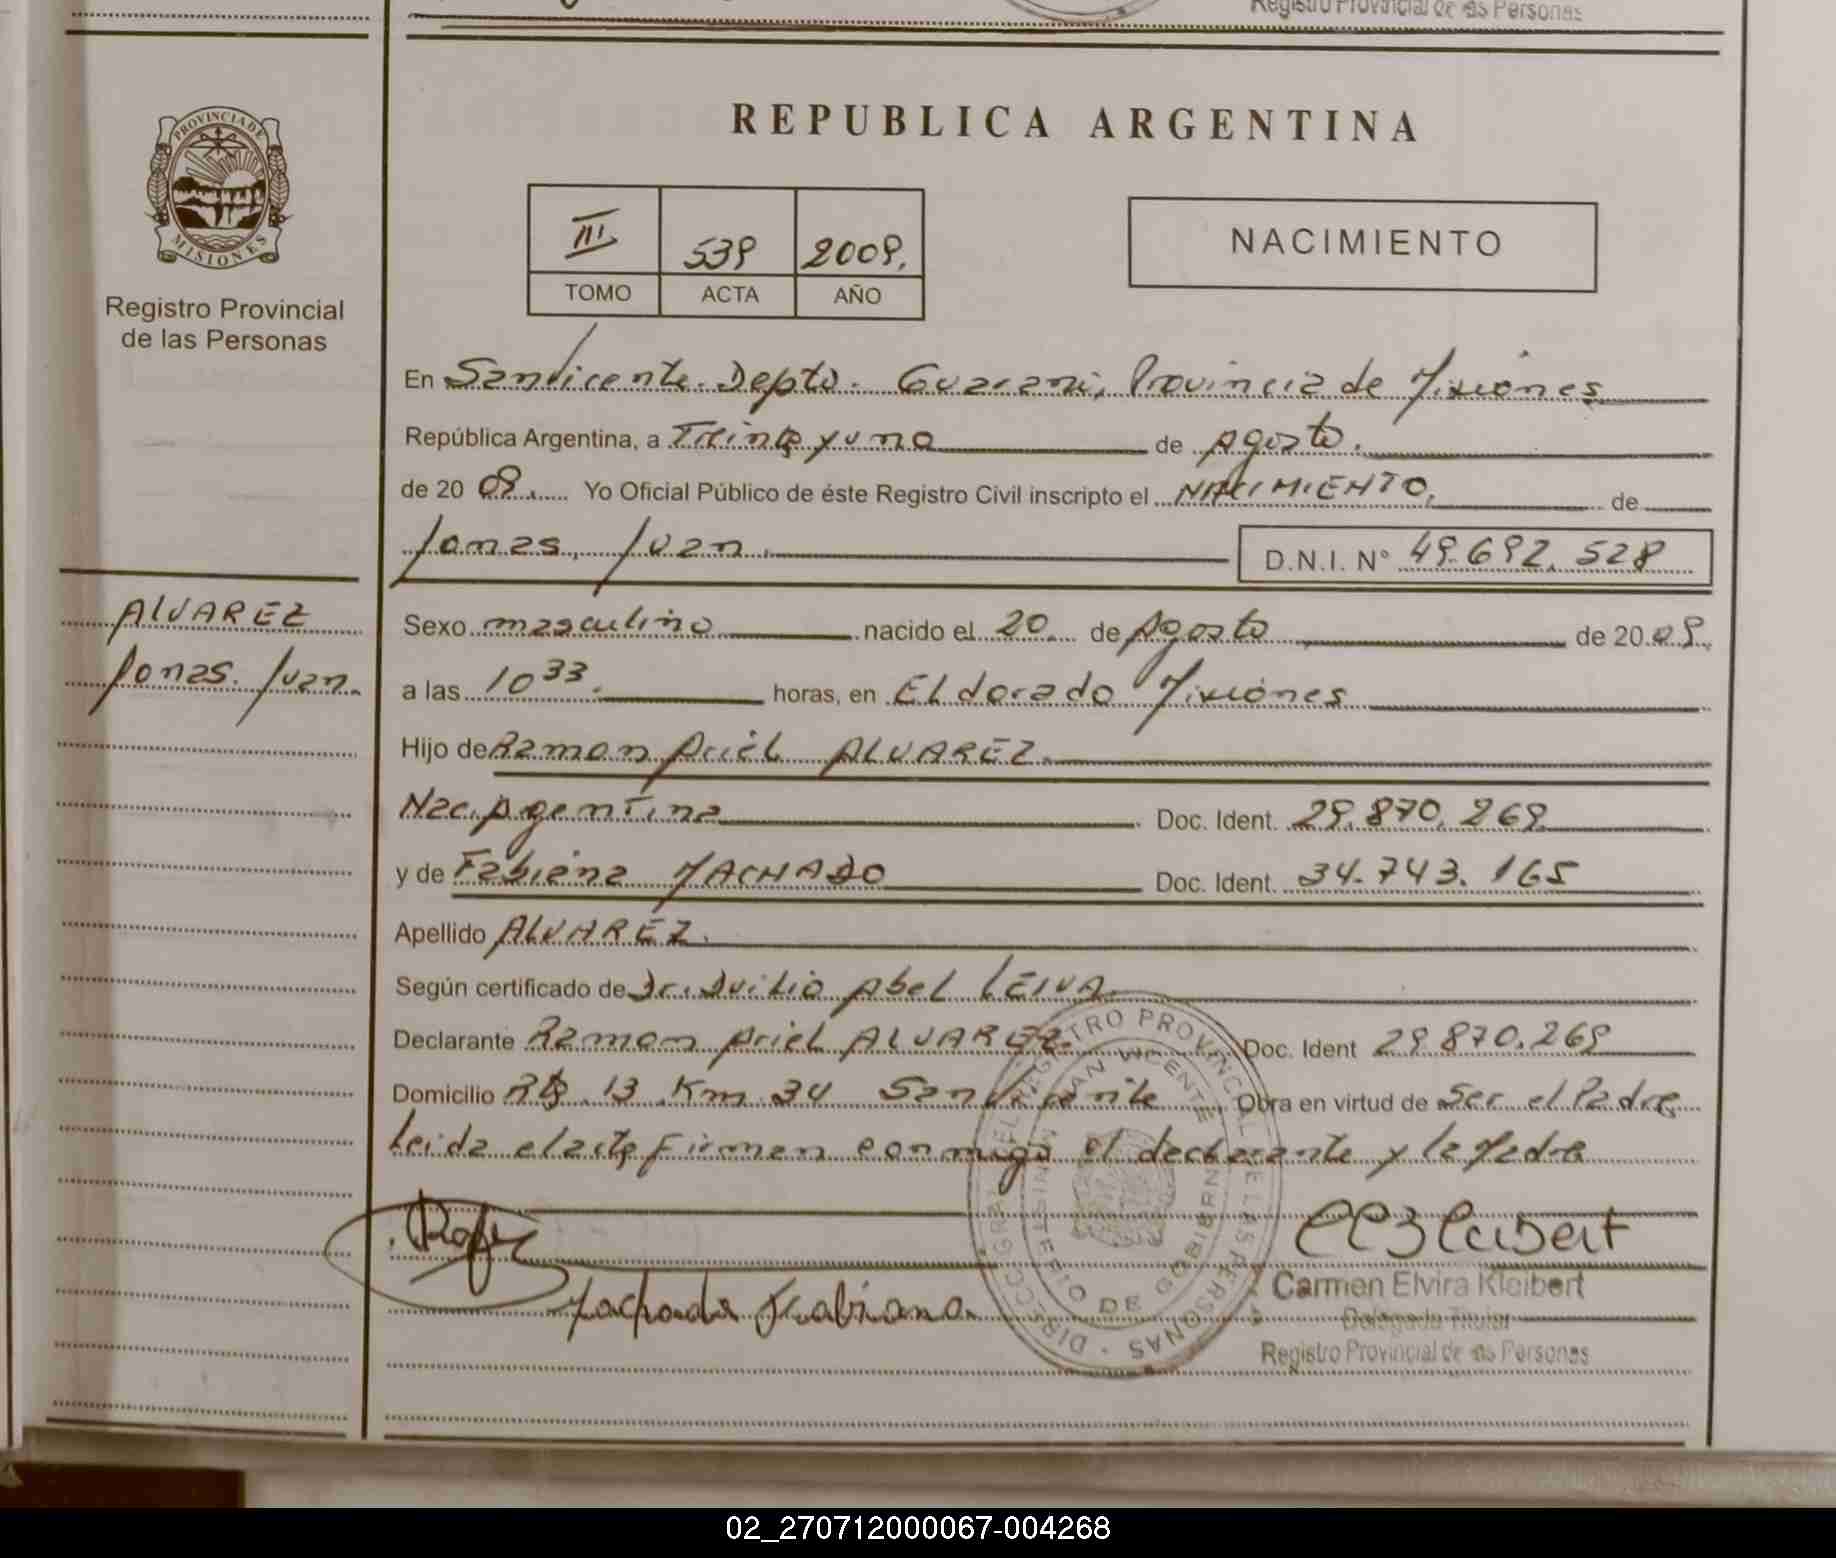 Registro Provincial de las Personas
PROVINCIA DE
MISIONES
Registro Provincial
de las Personas
REPUBLICA ARGENTINA
III 539 2009.
TOMO ACTA AÑO
NACIMIENTO
En San Vicente. Depto. Guarani, Provincia de Misiones
República Argentina, a Treinta y uno de Agosto.
de 20 09. Yo Oficial Público de éste Registro Civil inscripto el NACIMIENTO, de
Jonas, Juan. D.N.I. N° 49.692.528
ALVAREZ
Jonas. Juan.
Sexo masculino nacido el 20. de Agosto de 20.09.
a las 10 33. horas, en Eldorado Misiones
Hijo de Ramon Ariel ALVAREZ.
Nac. Agentina Doc. Ident. 29.870.269
y de Fabiana MACHADO Doc. Ident. 34.743.165
Apellido ALVAREZ.
Según certificado de Dr. Duilio Abel LEIVA.
Declarante Ramon Ariel ALVAREZ. Doc. Ident 29.870.269
Domicilio Rta. 13 Km 34 San Vicente Obra en virtud de Ser el Padre
Leida el acta firman conmigo el declarante y la Madre
Carmen Elvira Kleibert
Machado Fabiana.
Delegada Titular
Registro Provincial de las Personas
02_270712000067-004268